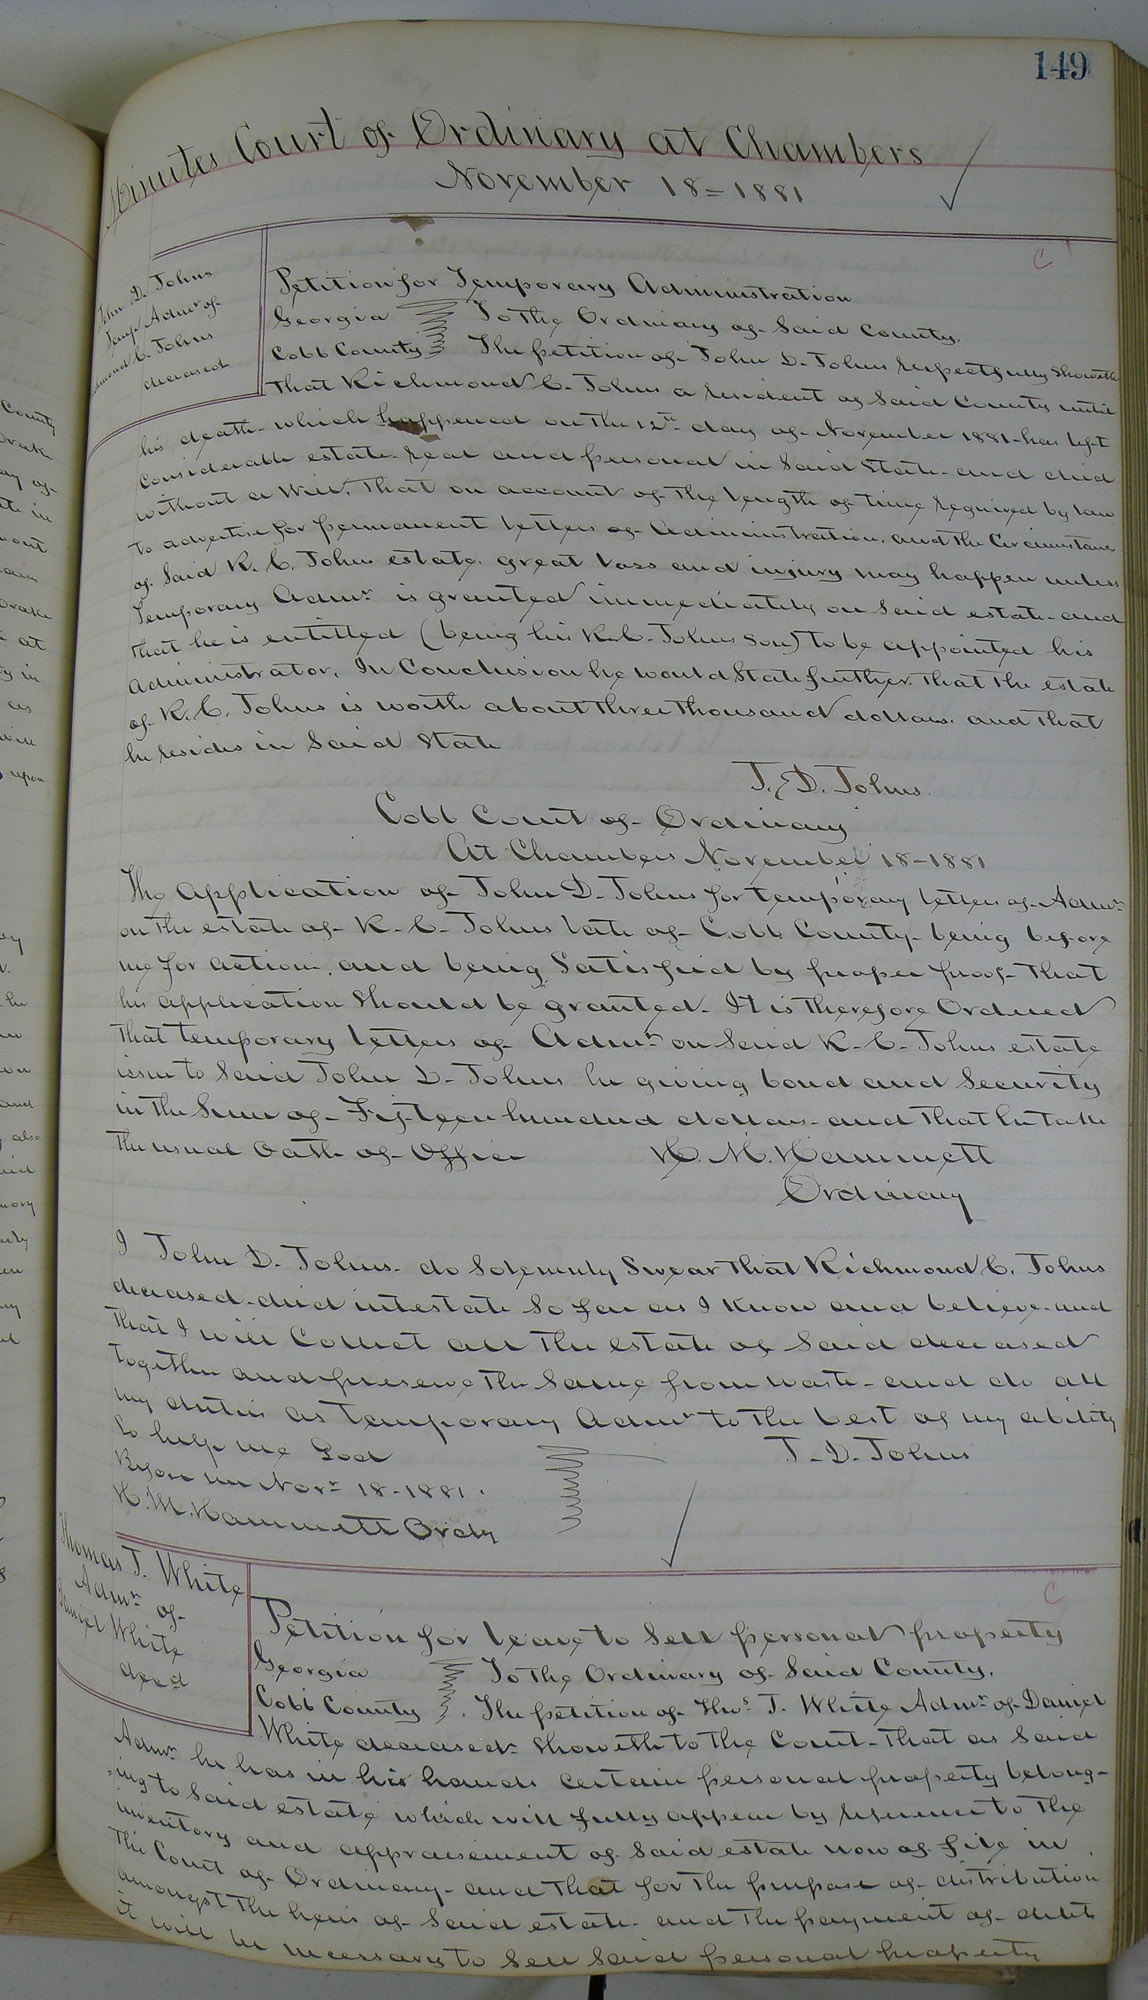 149
Minutes Court of Ordinary at Chambers
November 18=1881
C
John D. Johns
Temp Admr of
Richmond C. Johns
deceased
Petition for Temporary Administration
Georgia To the Ordinary of Said County.
Cobb County The petition of John D. Johns respectfully Showeth
that Richmond C. Johns a resident of Said County until
his death- which happened on the 12th day of November 1881- has left
Considerable estate- real and personal in Said State- and died
without a Will. That on account of the length of time required by law
to advertise for permanent letters of Administration. and the Circumstances
of Said R. C. Johns estate. great loss and injury may happen unless
Temporary Admr is granted immediately on Said estate- and
that he is entitled (being his R.C. Johns Son) to be appointed his
Administrator. In Conclusion he would State further that the estate
of R. C. Johns is worth about three thousand dollars. and that
he resides in Said State
J. D. Johns.
Cobb Court of Ordinary
At Chambers November 18-1881
The application of John D. Johns for temporary letters of Admr
on the estate of R. C. Johns late of Cobb County- being before
me for action, and being Satisfied by proper proof- that
his application Should be granted. It is therefore Ordered
that temporary letters of Admr on Said R. C. Johns estate
issue to Said John D. Johns he giving bond and Security
in the Sum of Fifteen hundred dollars- and that he take
the usual Oath of Office H. M. Hammett
Ordinary
I John D. Johns- do Solemnly Swear that Richmond C. Johns
deceased- died intestate So far as I know and believe- and
that I will Collect all the estate of Said deceased
together and preserve the Same from waste- and do all
my duties as temporary Admr to the best of my ability
So help me God J. D. Johns
Before me Novr 18-1881.
H. M. Hammett Ordy
Thomas J. White
Admr of
Daniel White
decd
C
Petition for leave to Sell personal property
Georgia To the Ordinary of Said County.
Cobb County. The petition of Thos J. White Admr of Daniel
White deceased- Showeth to the Court- that as Said
Admr he has in his hands certain personal property belong-
ing to Said estate which will fully appear by reference to the
inventory and appraisement of Said estate now of file in
the Court of Ordinary- and that for the purpose of distribution
amongst the heirs of Said estate- and the payment of debts
it will be necessary to Sell Said personal property